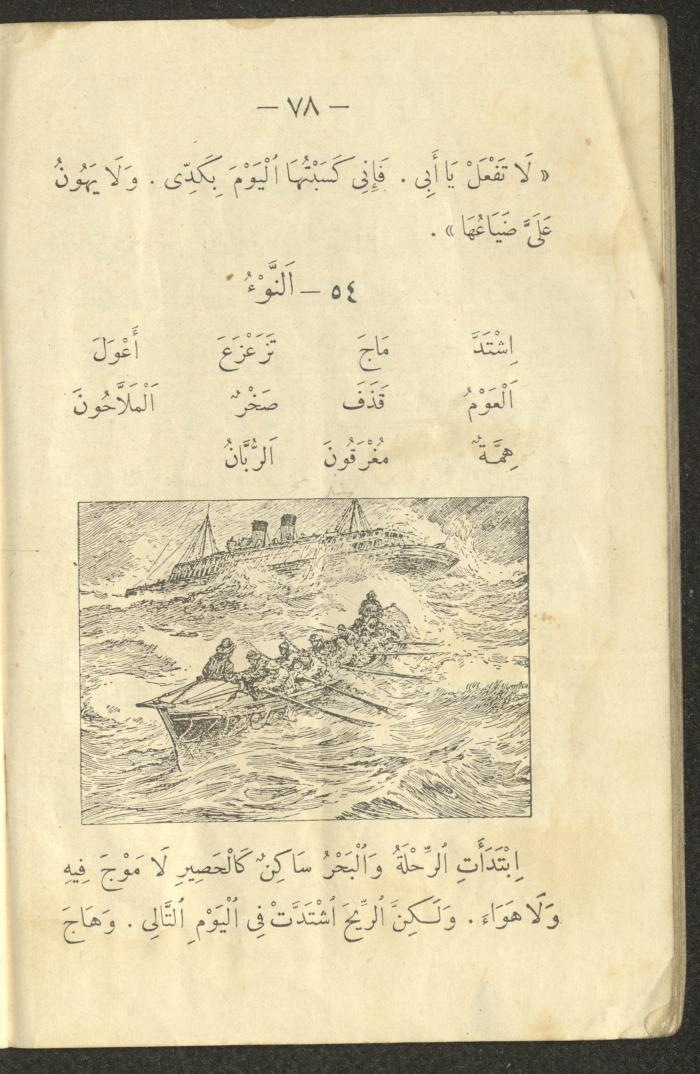 — ٧٨ —
« لَا تَفْعَلْ يَا أَبِى . فَإِنِى كَسَبْتُهَا ٱلْيَوْمَ بِكَدِّى . وَلَا يَهُونُ
عَلَىَّ ضَيَاعُهَا » .
٥٤ — اَلنَّوْءُ
اِشْتَدَّ مَاجَ تَزَعْزَعَ أَعْوَلَ
اَلْعَوْمُ قَذَفَ صَخْرٌ اَلْمَلَّاحُونَ
هِمَّةٌ مُغْرَقُونَ اَلرُّبَّانُ
اِبْتَدَأَتِ ٱلرِّحْلَةُ وَٱلْبَحْرُ سَاكِنٌ كَالْحَصِيرِ لَا مَوْجَ فِيهِ
وَلَا هَوَاءَ . وَلَـكِنَّ ٱلرِّيحَ ٱشْتَدَّتْ فِى ٱلْيَوْمِ ٱلتَّالِى . وَهَاجَ